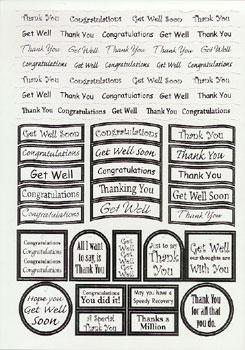 Thank You Congratulations Get Well Soon Thank You
Get Well Thank You Congratulations Get Well
Thank You Get Well Thank You Congratulations
Congratulations Get Well Thank You Get Well
Thank You Congratulations Get Well Soon Thank You
Get Well Thank You Congratulations Get Well
Thank You Congratulations Get Well Thank You Congratulations
Get Well Soon Congratulations Thank You
Congratulations Get Well Soon Thank You
Get Well Congratulations Get Well
Congratulations Thanking You Get Well Soon
Congratulations Get Well Thank You
Congratulations
Congratulations
Congratulations
Congratulations
All I want
to say, is
Thank You
Get
Well
Soon
Just to say
Thank
You
Get Well
our thoughts
are With
You
Hope you
Get Well
Soon
Congratulations
You did it!
May you have a
Speedy Recovery
A Special
Thank You
Thanks a
Million
Thank You
for all that
you do.